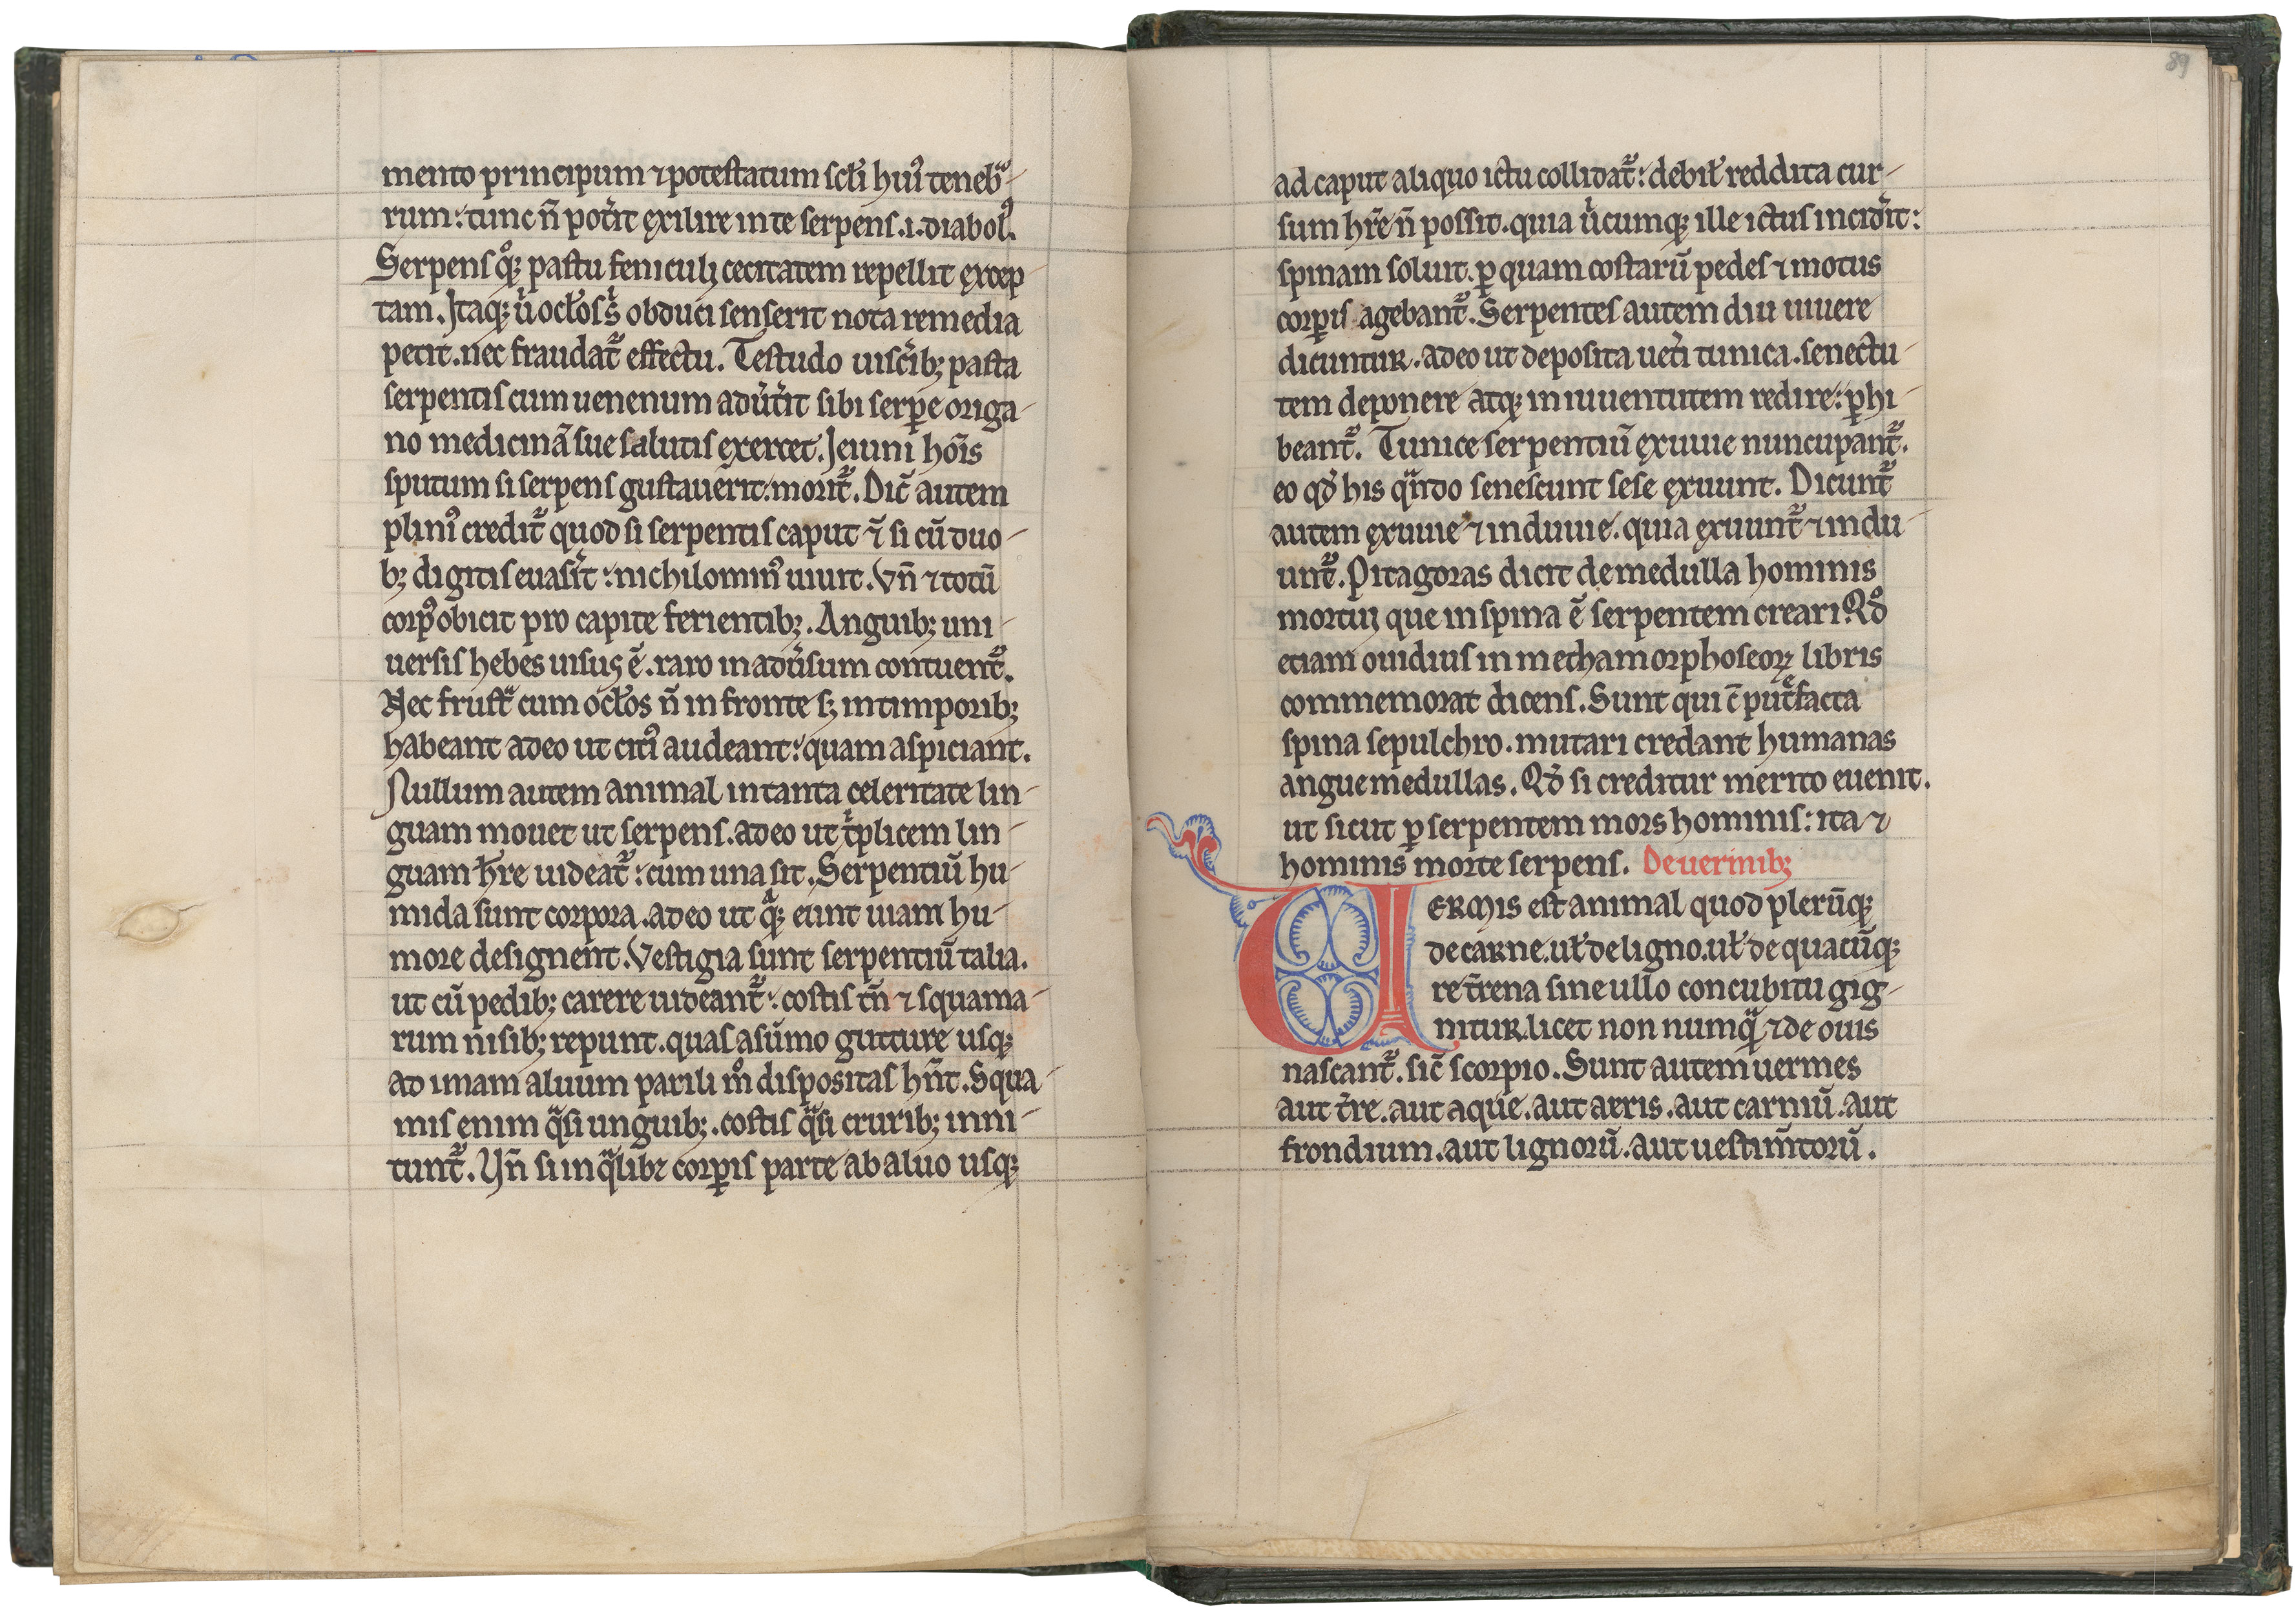 mento principum ⁊ potestatum scłi hui᾽ tenebᵃ-
rum: tunc n̄ pot͛it exilire in te serpens .i. diabol᾽.
Serpens qͦꝫ pastu feniculi cecitatem repellit excep
tam. Itaqꝫ uͥ ocłos sͥ obduci senserit nota remedia
petit. nec fraudat᷑ effectu. Testudo uisc͛ibꝫ pasta
serpentis cum uenenum adu͛t͛it sibi serpe origa-
no medicinā sue salutis exercet. Jeiuni hoı̄s
sputum si serpens gustauerit: morit᷑. Dic̄ autem
plini᾽ credit᷑ quod si serpentis caput ⁊̄ si cū duo-
bꝫ digitis euas͛it: nichilomin᾽ uiuit. Vn̄ ⁊ totū
corp᾽ obicit pro capite ferientibꝫ. Anguibꝫ uni-
uersis hebes uisus ē. raro in adu͛sum contuent᷑.
Nec frustᵃ cum ocłos n̄ in fronte sꝫ in timporibꝫ
habeant adeo ut citi᾽ audeant: quam aspiciant.
Nullum autem animal in tanta celeritate lin-
guam mouet ut serpens. adeo ut tͥplicem lin-
guam ħre uideat᷑: cum una sit. Serpentiū hu-
mida sunt corpora. adeo ut qᵃꝫ eunt uiam hu-
more designent. Vestigia sunt serpentiū talia.
ut cū pedibꝫ carere uideant᷑: costis tn̄ ⁊ squama-
rum nisibꝫ repunt. quas a sūmo gutture usqꝫ
ad imam aluum parili mͦ dispositas hn̄t. Squa-
mis enim qᵃsi unguibꝫ. costis qᵃsi cruribꝫ inni-
tunt᷑. Vn̄ si in qᵃlibꝫ corꝑis parte ab aluo usqꝫ
89
ad caput aliquo ictu collidat᷑: debił reddita cur-
sum hr̄e n̄ possit. quia uͥcumqꝫ ille ictus incid͛it:
spinam soluit. ꝑ quam costarū pedes ⁊ motus
corꝑis agebant᷑. Serpentes autem diu uiuere
dicuntur. adeo ut deposita uet͛i tunica. senectu-
tem deponere atqꝫ in iuuentutem redire: ꝑhi-
beant᷑. Tunice serpentiū exuuie nuncupant᷑.
eo qđ his qᵃndo senescunt sese exuunt. Dicunt᷑
autem exuuie ⁊ induuie. quia exuunt᷑ ⁊ indu-
unt᷑. Pitagoras dicit de medulla hominis
mortui que in spina ē serpentem creari. Qđ
etiam ouidius in methamorphoseoꝝ libris
commemorat dicens. Sunt qui c̄ put͛facta
spina sepulchro. mutari credant humanas
angue medullas. Qđ si creditur merito euenit.
ut sicut ꝑ serpentem mors hominis: ita ⁊
hominis morte serpens. De uermibꝫ
VERMIS est animal quod plerūqꝫ
de carne. uł de ligno. uł de quacūqꝫ
re t͛rena sine ullo concubitu gig-
nitur. licet non numqᵃ ⁊ de ouis
nascant᷑. sic̄ scorpio. Sunt autem uermes
aut t͛re. aut aque. aut aeris. aut carniū. aut
frondium. aut lignorū. aut uestim̄torū.